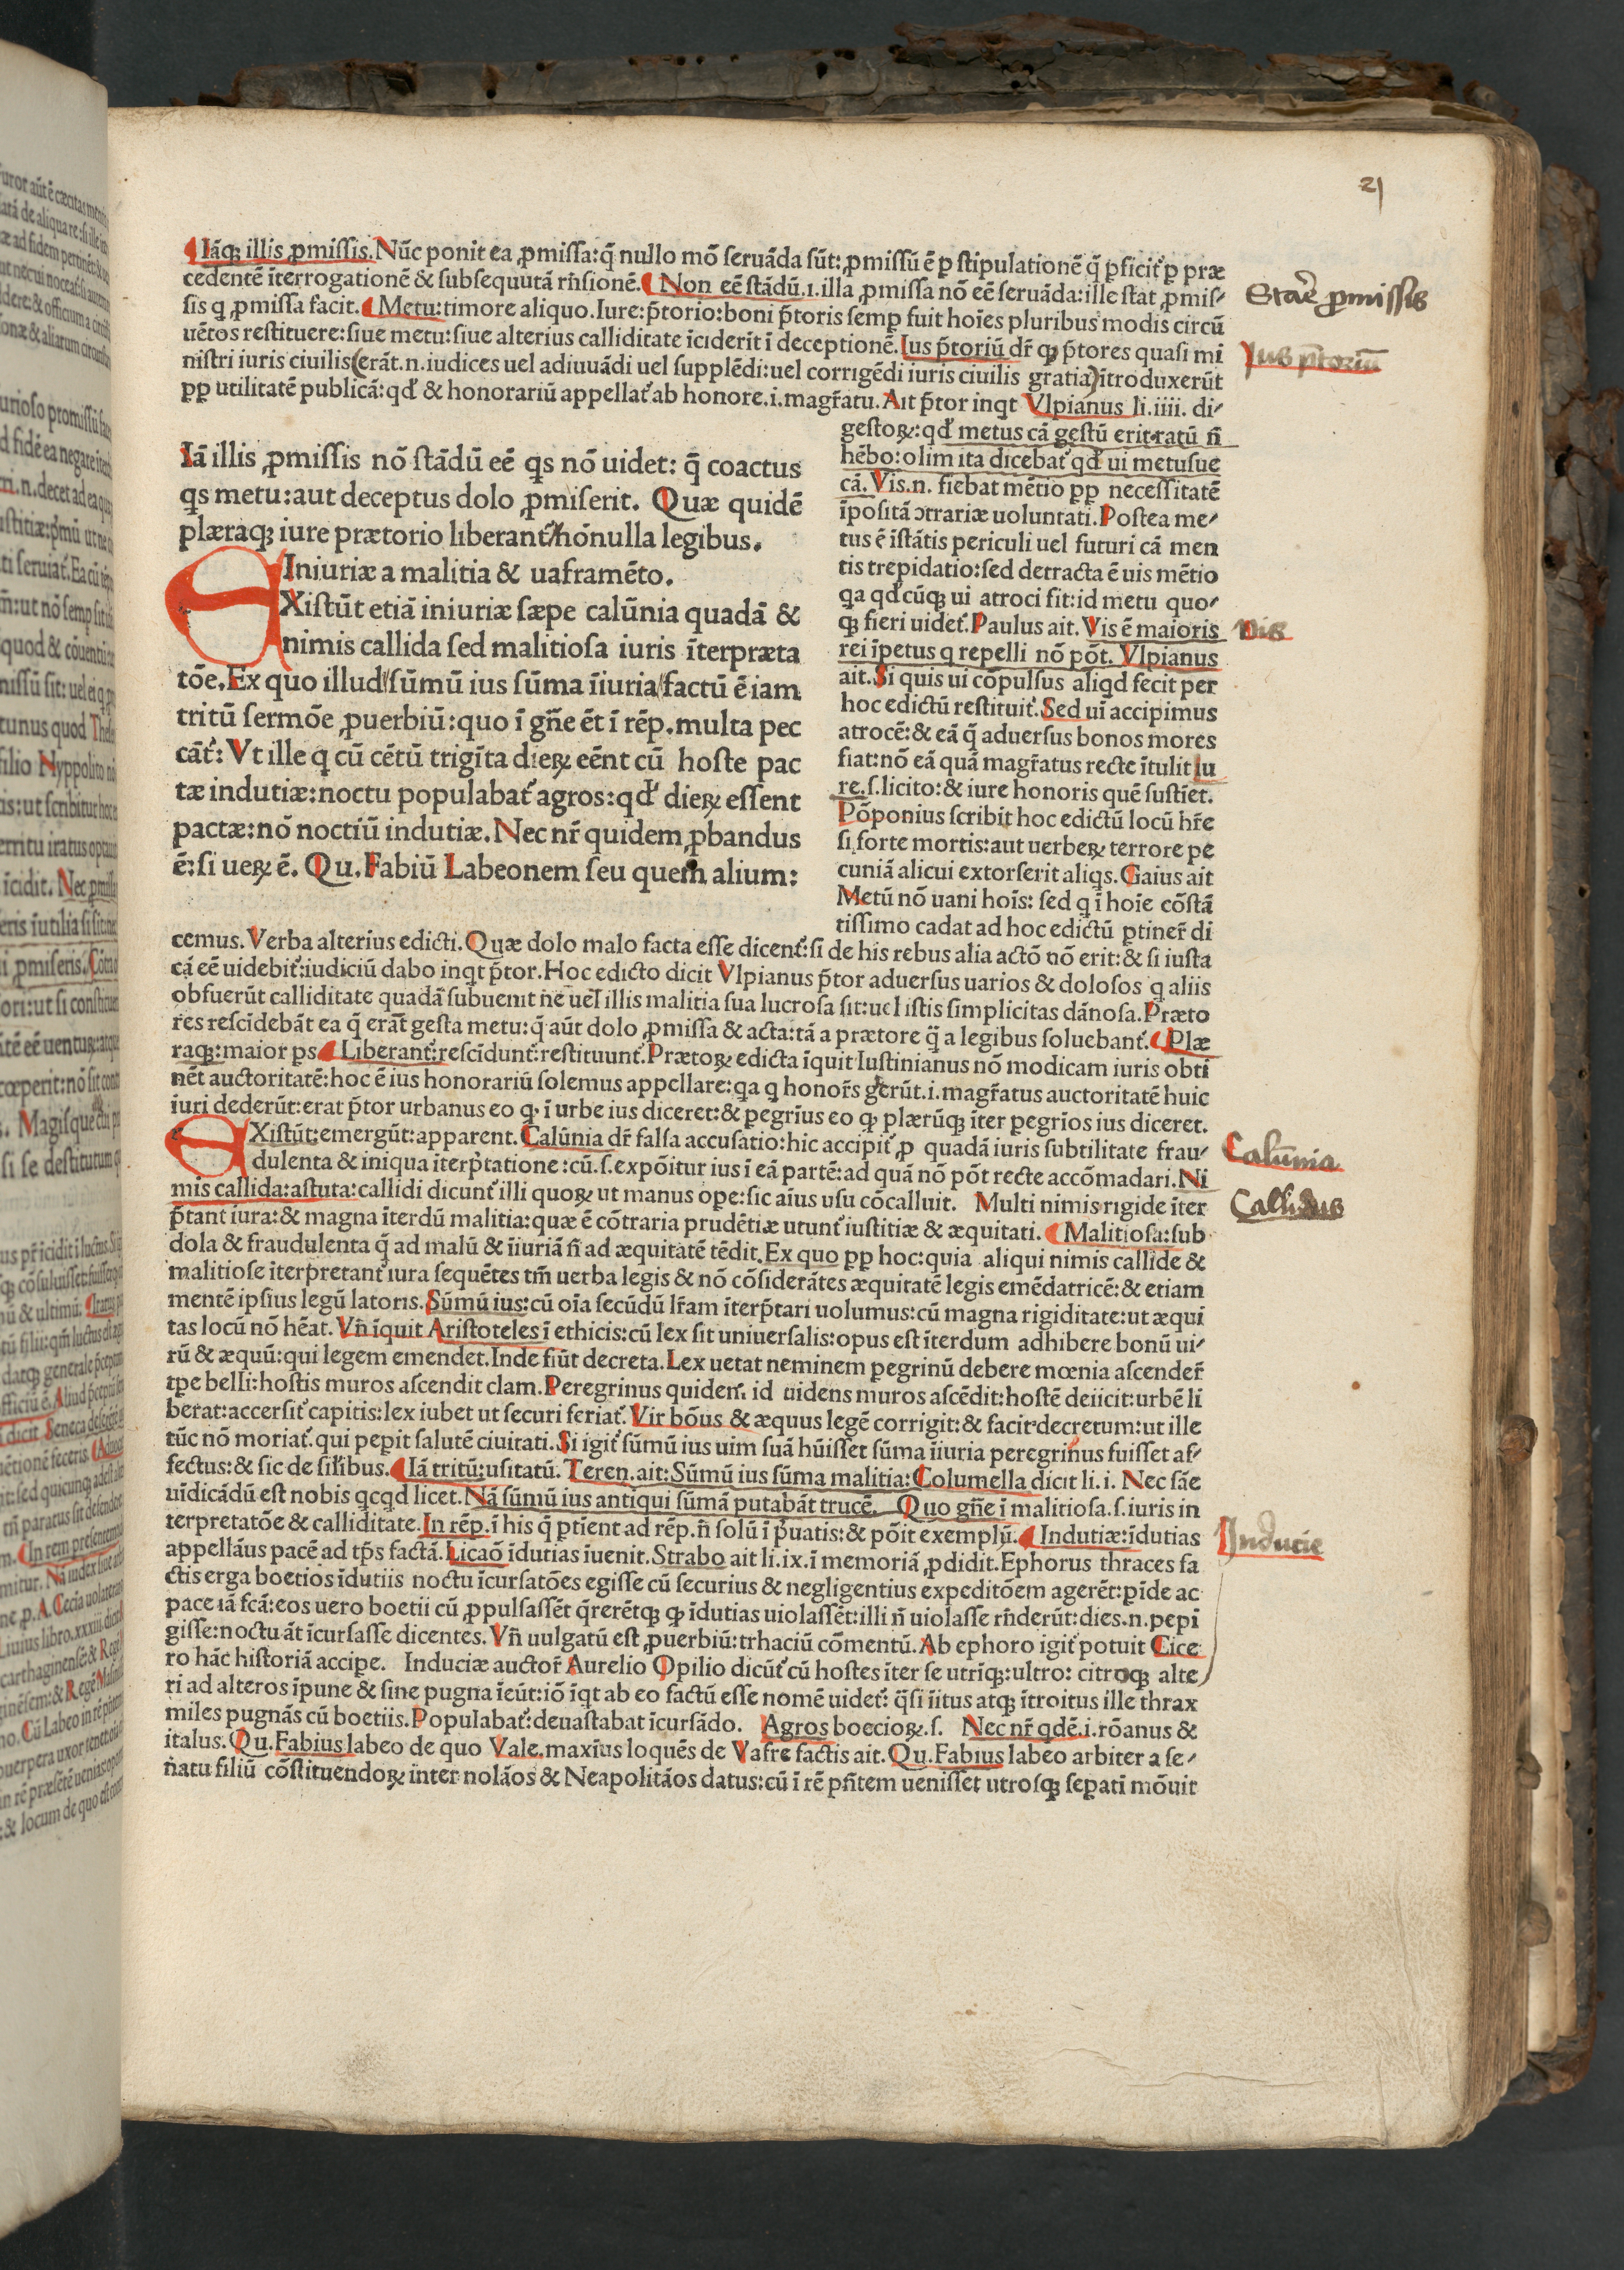 21
¶Iāqꝫ illis ꝓmissis. Nūc ponit ea ꝓmissa: q̄ nullo mō seruāda sūt: ꝓmissū ē ꝑ stipulationē q̄ ꝑficit᷑ ꝑ præ
cedentē īterrogationē & subsequutā rn̄sionē. ¶Non eē stādū.1.illa ꝓmissa nō eē seruāda: ille stat ꝓmis/
sis q ꝓmissa facit. ¶Metu: timore aliquo. Iure: p̄torio: boni p̄toris semꝑ fuit hoīes pluribus modis circū
uētos restituere: siue metu: siue alterius calliditate īciderit ī deceptionē. Ius p̄toriū dr̄ qꝫ p̄tores quasi mi
nistri iuris ciuilis (erāt.n.iudices uel adiuuādi uel supplēdi: uel corrigēdi iuris ciuilis gratia) ītroduxerūt
ꝑꝑ utilitatē publicā: qd̄ & honorariū appellat᷑ ab honore.i.magr̄atu. Ait p̄tor inqt Vlpianus li.iiii. di/
Stare ꝓmissis
Ius p̄toriū
Iā illis ꝓmissis nō stādū eē qs nō uidet: q̄ coactus
qs metu: aut deceptus dolo ꝓmiserit. Quæ quidē
plæraqꝫ iure prætorio liberant᷑/nōnulla legibus.
Iniuriæ a malitia & uaframēto.
EXistūt etiā iniuriæ sæpe calūnia quadā &
nimis callida sed malitiosa iuris īterpræta
tōe. Ex quo illud/sūmū ius sūma īiuria/factū ē iam
tritū sermōe ꝓuerbiū: quo ī gn̄e ēt ī rēp.multa pec
cāt᷑: Vt ille q cū cētū trigīta dieꝝ eēnt cū hoste pac
tæ indutiæ: noctu populabat᷑ agros: qd̄ dieꝝ essent
pactæ: nō noctiū indutiæ. Nec nr̄ quidem ꝓbandus
ē: si ueꝝ ē. Qu. Fabiū Labeonem seu quem alium:
gestoꝝ: qd̄ metus cā gestū erit ratū n̄
hēbo: olim ita dicebat᷑ qd̄ ui metusue
cā. Vis.n. fiebat mētio ꝑꝑ necessitatē
īpositā ↄtrariæ uoluntati. Postea me/
tus ē īstātis periculi uel futuri cā men
tis trepidatio: sed detracta ē uis mētio
qa qd̄cūqꝫ ui atroci fit: id metu quo/
qꝫ fieri uidet᷑. Paulus ait. Vis ē maioris
rei īpetus q repelli nō pōt. Vlpianus
ait. Si quis ui cōpulsus aliqd fecit per
hoc edictū restituit᷑. Sed uī accipimus
atrocē: & eā q̄ aduersus bonos mores
fiat: nō eā quā magr̄atus recte ītulit Iu
re.s.licito: & iure honoris quē sustīet.
Pōponius scribit hoc edictū locū hr̄e
si forte mortis: aut uerbeꝝ terrore pe
cuniā alicui extorserit aliqs. Gaius ait
Metū nō uani hoīs: sed q ī hoīe cōstā
tissimo cadat ad hoc edictū ꝑtiner̄ di
Vis
cemus. Verba alterius edicti. Quæ dolo malo facta esse dicent᷑: si de his rebus alia actō nō erit: & si iusta
cā eē uidebit᷑: iudiciū dabo inqt p̄tor. Hoc edicto dicit Vlpianus p̄tor aduersus uarios & dolosos q aliis
obfuerūt calliditate quadā subuenit ne uel illis malitia sua lucrosa sit: uel istis simplicitas dānosa. Præto
res rescīdebāt ea q̄ erāt gesta metu: q̄ aūt dolo ꝓmissa & acta: tā a prætore q̄ a legibus soluebant᷑. ¶Plæ
raqꝫ: maior ps ¶Liberant᷑: rescīdunt᷑: restituunt᷑. Prætoꝝ edicta īquit Iustinianus nō modicam iuris obtī
nēt auctoritatē: hoc ē ius honorariū solemus appellare: qa q honor̄s gerūt.i.magr̄atus auctoritatē huic
iuri dederūt: erat p̄tor urbanus eo qꝫ ī urbe ius diceret: & ꝑegrīus eo qꝫ plærūqꝫ īter ꝑegrīos ius diceret.
EXistūt: emergūt: apparent. Calūnia dr̄ falsa accusatio: hic accipit᷑ ꝓ quadā iuris subtilitate frau/
dulenta & iniqua īterp̄tatione: cū.s.expōitur ius ī eā partē: ad quā nō pōt recte accōmadari. Ni
mis callida: astuta: callidi dicunt᷑ illi quoꝝ ut manus ope: sic aīus usu cōcalluit. Multi nimis rigide īter
p̄tant iura: & magna īterdū malitia: quæ ē cōtraria prudētiæ utunt᷑ iustitiæ & æquitati. ¶Malitiosa: sub
dola & fraudulenta q̄ ad malū & īiuriā n̄ ad æquitatē tēdit. Ex quo ꝑꝑ hoc: quia aliqui nimis callide &
malitiose īterpretant᷑ iura sequētes tm̄ uerba legis & nō cōsiderātes æquitatē legis emēdatricē: & etiam
mentē ipsius legū latoris. Sūmū ius: cū oīa secūdū lr̄am īterp̄tari uolumus: cū magna rigiditate: ut æqui
tas locū nō hēat. Vn̄ īquit Aristoteles ī ethicis: cū lex sit uniuersalis: opus est īterdum adhibere bonū ui/
rū & æquū: qui legem emendet. Inde fiūt decreta. Lex uetat neminem ꝑegrinū debere mœnia ascender̄
tꝑe belli: hostis muros ascendit clam. Peregrinus quidem id uidens muros ascēdit: hostē deiicit: urbē li
berat: accersit᷑ capitis: lex iubet ut securi feriat᷑. Vir bōus & æquus legē corrigit: & facit decretum: ut ille
tūc nō moriat᷑. qui peꝑit salutē ciuitati. Si igit᷑ sūmū ius uim suā hūisset sūma īiuria peregrinus fuisset af/
fectus: & sic de sil̄ibus. ¶Iā tritū: usitatū. Teren.ait: Sūmū ius sūma malitia: Columella dicit li.i. Nec sāe
uīdicādū est nobis qcqd licet. Nā sūmū ius antiqui sūmā putabāt trucē. Quo gn̄e ī malitiosa.s.iuris in
terpretatōe & calliditate. In rēp.ī his q̄ ꝑtīent ad rēp.n̄ solū ī p̄uatis: & pōit exemplū. ¶Indutiæ: īdutias
appellāus pacē ad tp̄s factā. Licaō īdutias īuenit. Strabo ait li.ix.ī memoriā ꝓdidit. Ephorus thraces fa
ctis erga boetios īdutiis noctu īcursatōes egisse cū securius & negligentius expeditōem agerēt: ꝑīde ac
pace iā fcā: eos uero boetii cū ꝓpulsassēt q̄rerētqꝫ qꝫ īdutias uiolassēt: illi n̄ uiolasse rn̄derūt: dies.n.peꝑi
gisse: noctu āt īcursasse dicentes. Vn̄ uulgatū est ꝓuerbiū: trhaciū cōmentū. Ab ephoro igit᷑ potuit Cice
ro hāc historiā accipe. Induciæ auctor̄ Aurelio Opilio dicūt᷑ cū hostes īter se utrīqꝫ: ultro: citroqꝫ alte
ri ad alteros īpune & sine pugna īeūt: iō īqt ab eo factū esse nomē uidet᷑: q̄si īitus atqꝫ ītroitus ille thrax
miles pugnās cū boetiis. Populabat᷑: deuastabat īcursādo. Agros boecioꝝ.s. Nec nr̄ qdē.i.rōanus &
italus. Qu. Fabius labeo de quo Vale. maxīus loquēs de Vafre factis ait. Qu. Fabius labeo arbiter a se/
natu filiū cōstituendoꝝ inter nolāos & Neapolitāos datus: cū ī rē pn̄tem uenisset utrosqꝫ seꝑati mōuit
Calūnia
Callidus
Inducie